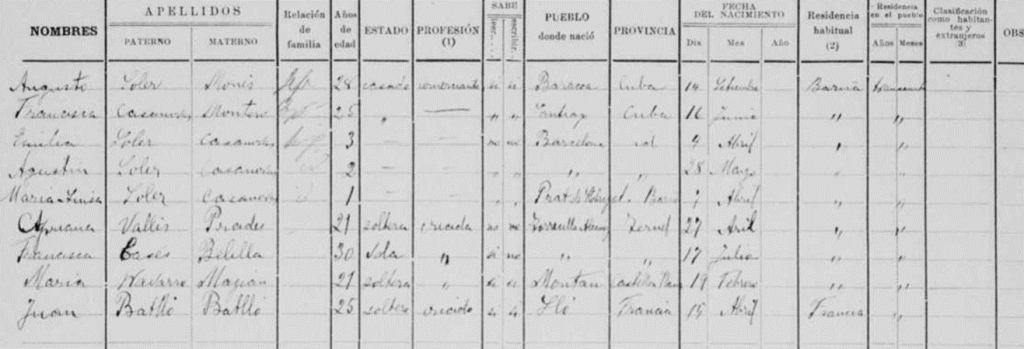 NOMBRES APELLIDOS PATERNO MATERNO Relación de familia Años de edad ESTADO PROFESIÓN (1) SABE leer escribir PUEBLO donde nació PROVINCIA FECHA DEL NACIMIENTO Día Mes Año Residencia habitual (2) Residencia en el pueblo Años Meses Clasificación como habitantes y extranjeros (3) OBS
Augusto Soler Monés 28 casado comerciante si si Baracoa Cuba 14 Setiembre Barña transeunte
Francisca Casanovas Montero 25 " — " " Cuba 16 Junio " "
Emilia Soler Casanovas 3 — — no no Barcelona id 9 Abril " "
Agustin Soler Casanovas 2 — — " " " " 28 Mayo " "
Maria Luisa Soler Casanovas id 1 — — " " Prat de Barña Abril " "
Vallés Prades 21 soltera criada no no Teruel 27 Avil " "
Francisca Eases Belilla 30 Vda " si no " " 17 Julio " "
Maria Navarro 21 soltera " si si Montan 19 Febrero " "
Juan Batlló Batlló 25 soltero criado si si Lló Francia 15 Abril Francia "